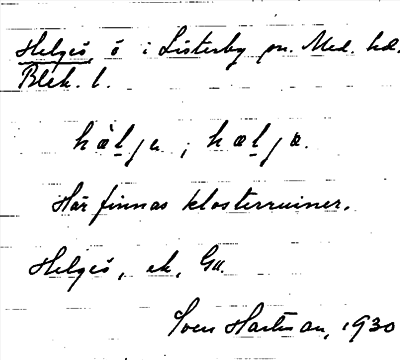 Helgeö ö i Listerby sn. Med. hd.
Blek. l.
hàlju, hælja.
Här finnas klosterruiner.
Helgeö, ek, Ga.
Sven Hartman, 1930